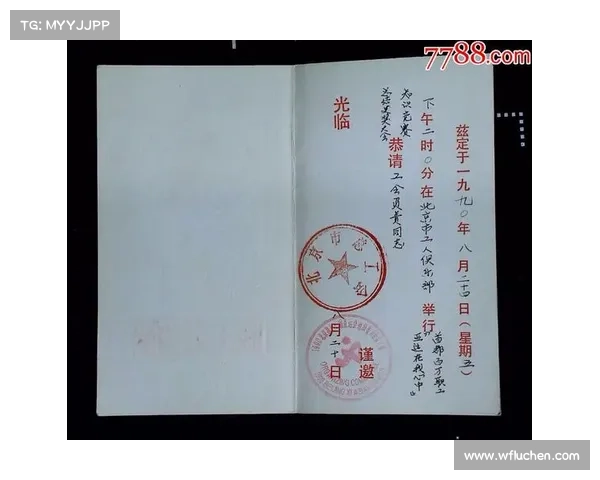 TG: MYYJJPP
7788.com
兹定于一九九〇年八月二十四日(星期五)
下午二时〇分在北京市工人俱乐部举行"首都百万职工
亚运在我心中"
知识竞赛
大会
恭请工会负责同志
光临
谨邀
八月二十日
北京市总工会
www.wfluchen.com